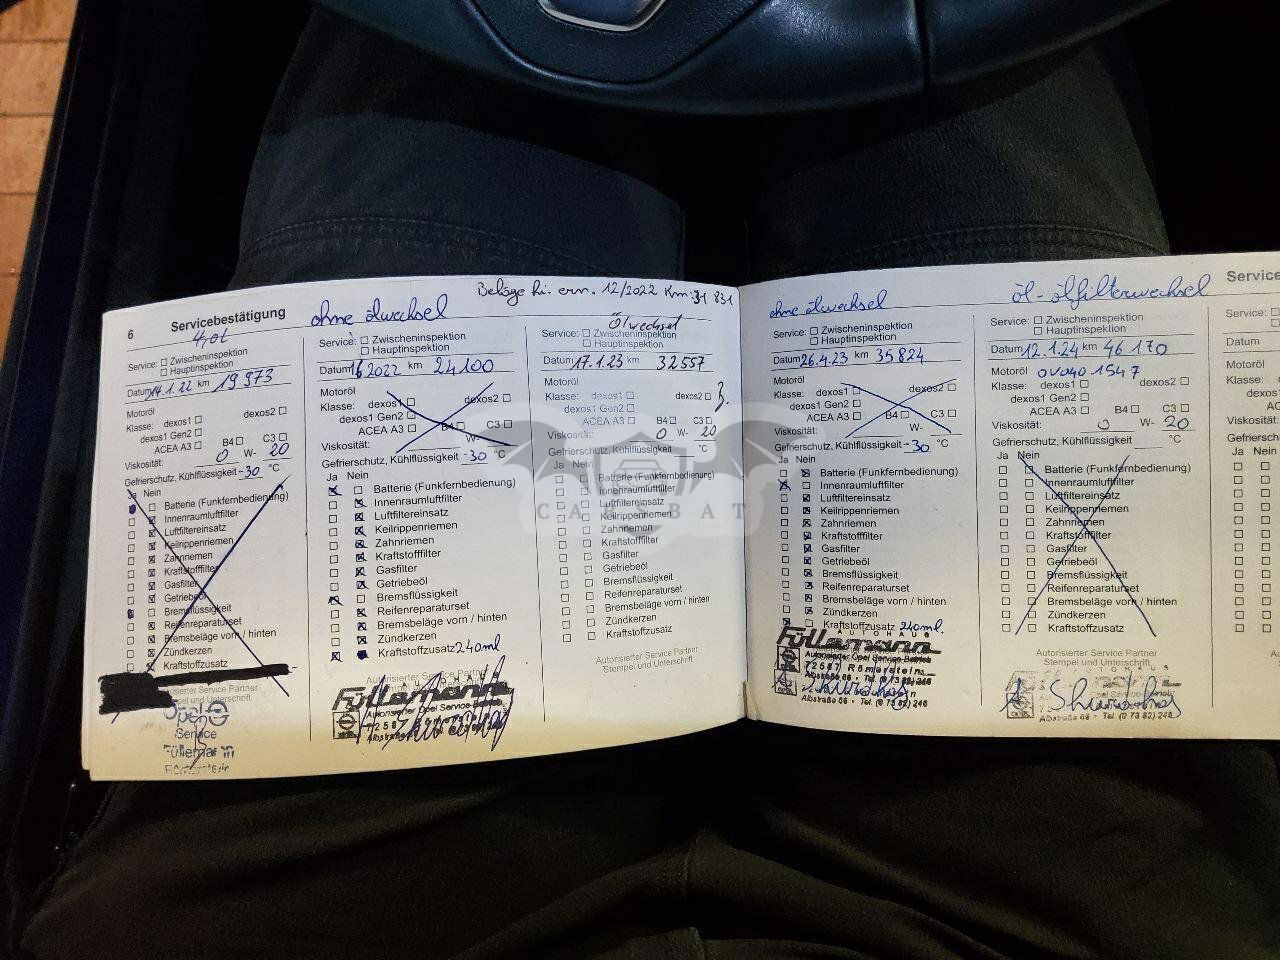 6 Servicebestätigung
4,0l
Service: ☐ Zwischeninspektion
☐ Hauptinspektion
Datum 14.1.22 km 19 973
Motoröl
Klasse: dexos1 ☐ dexos2 ☐
dexos1 Gen2 ☐
ACEA A3 ☐ B4 ☐ C3 ☐
Viskosität: 0 W- 20
Gefrierschutz, Kühlflüssigkeit -30 °C
Ja Nein
Batterie (Funkfernbedienung)
Innenraumluftfilter
Luftfiltereinsatz
Keilrippenriemen
Zahnriemen
Kraftstofffilter
Gasfilter
Getriebeöl
Bremsflüssigkeit
Reifenreparaturset
Bremsbeläge vorn / hinten
Zündkerzen
Kraftstoffzusatz
Autorisierter Service Partner
Stempel und Unterschrift
Opel
Service
Füllemann
ohne ölwechsel
Service: ☐ Zwischeninspektion
☐ Hauptinspektion
Datum 2022 km 24100
Motoröl
Klasse: dexos1 ☐ dexos2 ☐
dexos1 Gen2 ☐
ACEA A3 ☐ B4 ☐ C3 ☐
Viskosität: W-
Gefrierschutz, Kühlflüssigkeit -30 °C
Ja Nein
Batterie (Funkfernbedienung)
Innenraumluftfilter
Luftfiltereinsatz
Keilrippenriemen
Zahnriemen
Kraftstofffilter
Gasfilter
Getriebeöl
Bremsflüssigkeit
Reifenreparaturset
Bremsbeläge vorn / hinten
Zündkerzen
Kraftstoffzusatz 240ml
AUTOHAUS
Füllemann
Autorisierter Opel Service Betrieb
Beläge hi. ern. 12/2022 Km: 31 831
Ölwechsel
Service: ☐ Zwischeninspektion
☐ Hauptinspektion
Datum 17.1.23 km 32 557
Motoröl
Klasse: dexos1 ☐ dexos2 ☐
dexos1 Gen2 ☐
ACEA A3 ☐ B4 ☐ C3 ☐
Viskosität: 0 W- 20
Gefrierschutz, Kühlflüssigkeit °C
Ja Nein
Batterie (Funkfernbedienung)
Innenraumluftfilter
Luftfiltereinsatz
Keilrippenriemen
Zahnriemen
Kraftstofffilter
Gasfilter
Getriebeöl
Bremsflüssigkeit
Reifenreparaturset
Bremsbeläge vorn / hinten
Zündkerzen
Kraftstoffzusatz
Autorisierter Service Partner
Stempel und Unterschrift
ohne ölwechsel
Service: ☐ Zwischeninspektion
☐ Hauptinspektion
Datum 26.4.23 km 35824
Motoröl
Klasse: dexos1 ☐ dexos2 ☐
dexos1 Gen2 ☐
ACEA A3 ☐ B4 ☐ C3 ☐
Viskosität: W-
Gefrierschutz, Kühlflüssigkeit -30 °C
Ja Nein
Batterie (Funkfernbedienung)
Innenraumluftfilter
Luftfiltereinsatz
Keilrippenriemen
Zahnriemen
Kraftstofffilter
Gasfilter
Getriebeöl
Bremsflüssigkeit
Reifenreparaturset
Bremsbeläge vorn / hinten
Zündkerzen
Kraftstoffzusatz 240ml.
AUTOHAUS
Füllemann
Autorisierter Opel Service Betrieb
72587 Römerstein
Albstraße 68 • Tel. (0 73 82) 246
öl-ölfilterwechsel
Service: ☐ Zwischeninspektion
☐ Hauptinspektion
Datum 12.1.24 km 46 170
Motoröl OV040 1547
Klasse: dexos1 ☐ dexos2 ☐
dexos1 Gen2 ☐
ACEA A3 ☐ B4 ☐ C3 ☐
Viskosität: 0 W- 20
Gefrierschutz, Kühlflüssigkeit °C
Ja Nein
Batterie (Funkfernbedienung)
Innenraumluftfilter
Luftfiltereinsatz
Keilrippenriemen
Zahnriemen
Kraftstofffilter
Gasfilter
Getriebeöl
Bremsflüssigkeit
Reifenreparaturset
Bremsbeläge vorn / hinten
Zündkerzen
Kraftstoffzusatz
Autorisierter Service Partner
Stempel und Unterschrift
AUTOHAUS
Opel Service
Albstraße 68 • Tel. (0 73 82) 246
Service
Datum
Motoröl
Klasse:
Viskosität:
Gefrierschutz
Ja Nein
CAROBAT